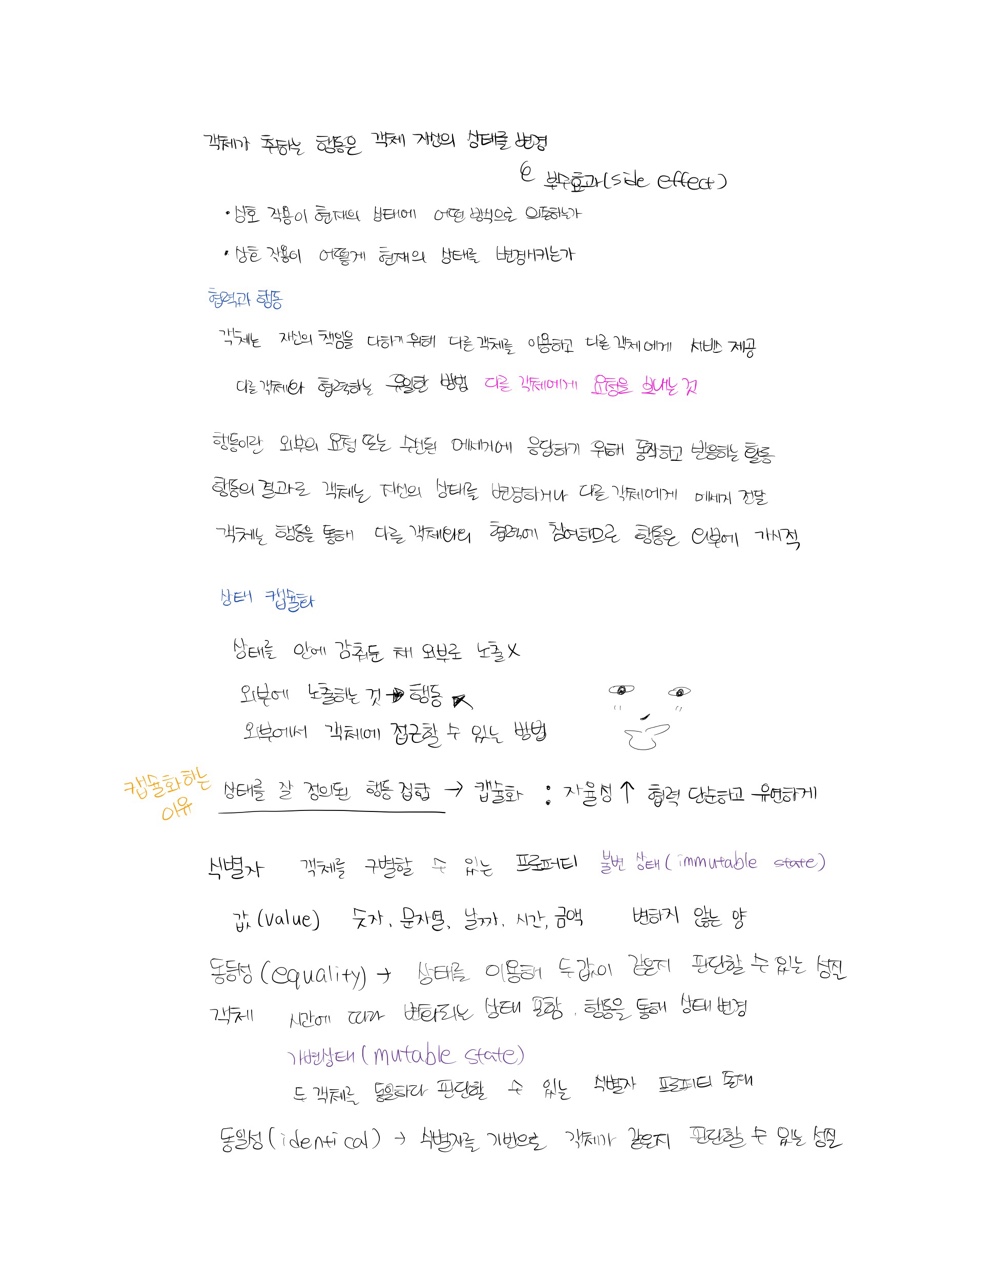 객체가 취하는 행동은 객체 자신의 상태를 변경
부수효과(side effect)
· 상호 작용이 현재의 상태에 어떤 방식으로 의존하는가
· 상호 작용이 어떻게 현재의 상태를 변경시키는가
협력과 행동
객체는 자신의 책임을 다하기 위해 다른 객체를 이용하고 다른 객체에게 서비스 제공
다른 객체와 협력하는 유일한 방법 다른 객체에게 요청을 보내는 것
행동이란 외부의 요청 또는 수신된 메세지에 응답하기 위해 동작하고 반응하는 활동
행동의 결과로 객체는 자신의 상태를 변경하거나 다른 객체에게 메세지 전달
객체는 행동을 통해 다른 객체와의 협력에 참여하므로 행동은 외부에 가시적
상태 캡슐화
상태를 안에 감춰둔 채 외부로 노출 X
외부에 노출하는 것 → 행동
외부에서 객체에 접근할 수 있는 방법
캡슐화하는
이유
상태를 잘 정의된 행동 집합 → 캡슐화 : 자율성↑ 협력 단순하고 유연하게
식별자 객체를 구별할 수 있는 프로퍼티 불변 상태(immutable state)
값(value) 숫자, 문자열, 날짜, 시간, 금액 변하지 않는 양
동등성(equality) → 상태를 이용해 두 값이 같은지 판단할 수 있는 성질
객체 시간에 따라 변화되는 상태 포함, 행동을 통해 상태 변경
가변상태(mutable state)
두 객체를 동일하다 판단할 수 있는 식별자 프로퍼티 존재
동일성(identical) → 식별자를 기반으로 객체가 같은지 판단할 수 있는 성질